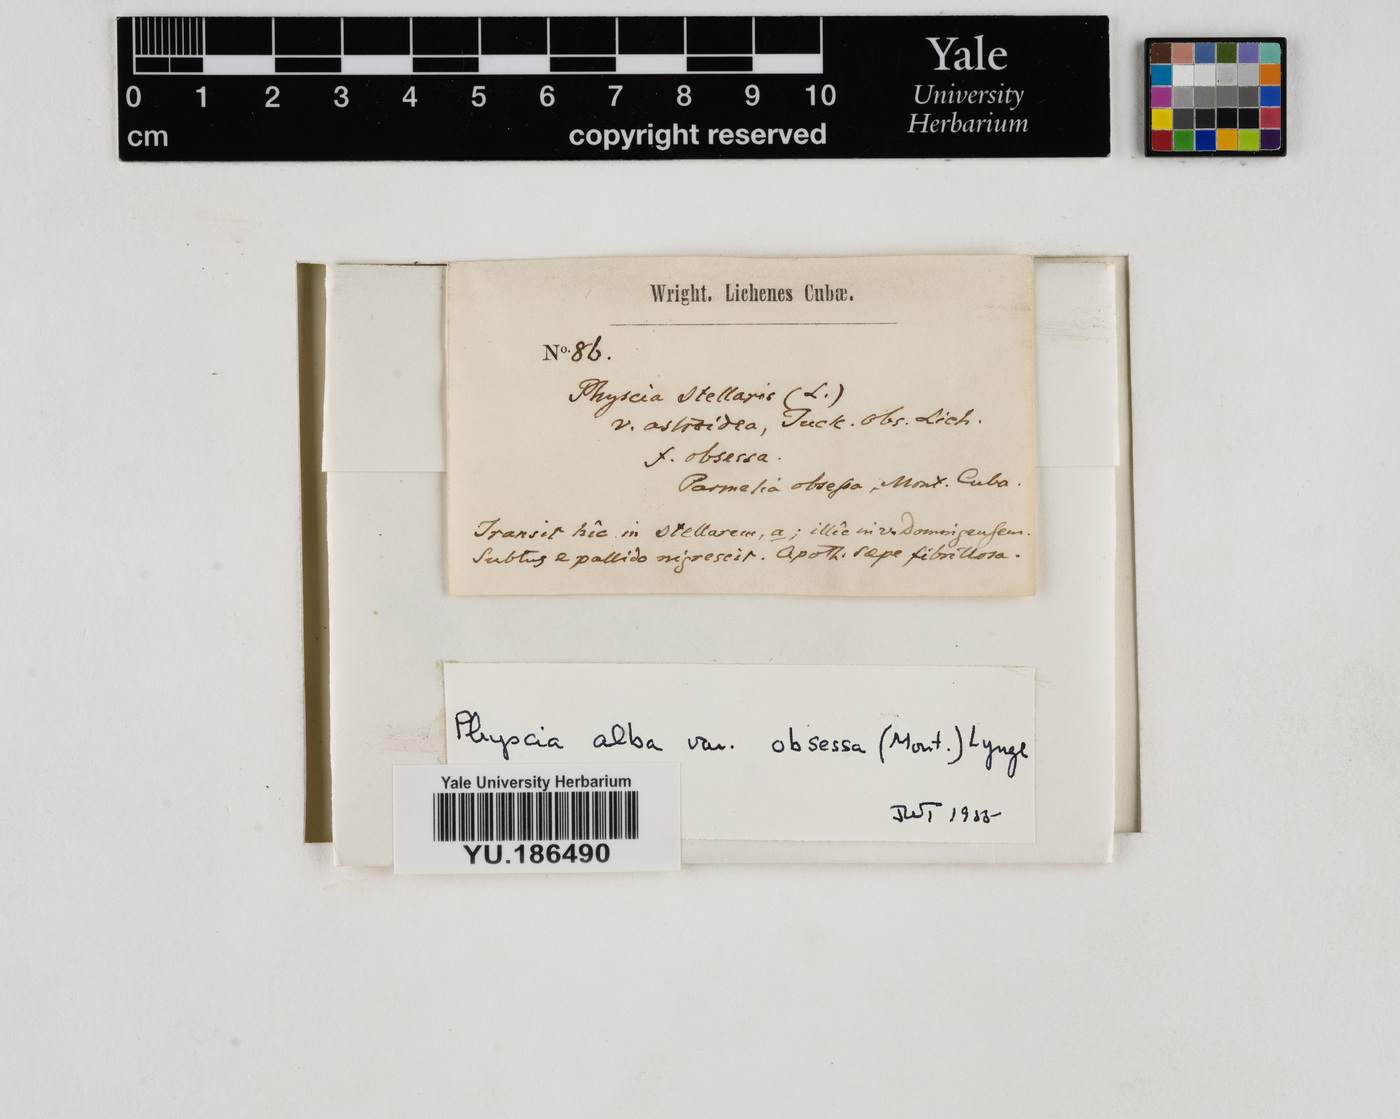 0 1 2 3 4 5 6 7 8 9 10
cm
copyright reserved
Yale
University
Herbarium
Wright. Lichenes Cubæ.
No. 86.
Physcia stellaris (L.)
v. astroidea, Tuck. Obs. Lich.
f. obsessa.
Parmelia obsessa, Mont. Cuba.
Transit hîc in stellarem, a; illîc in v. Domingensem.
Subtus e pallido nigrescit. Apoth. sæpe fibrillosa.
Physcia alba var. obsessa (Mont.) Lynge
JWT 1955
Yale University Herbarium
YU.186490